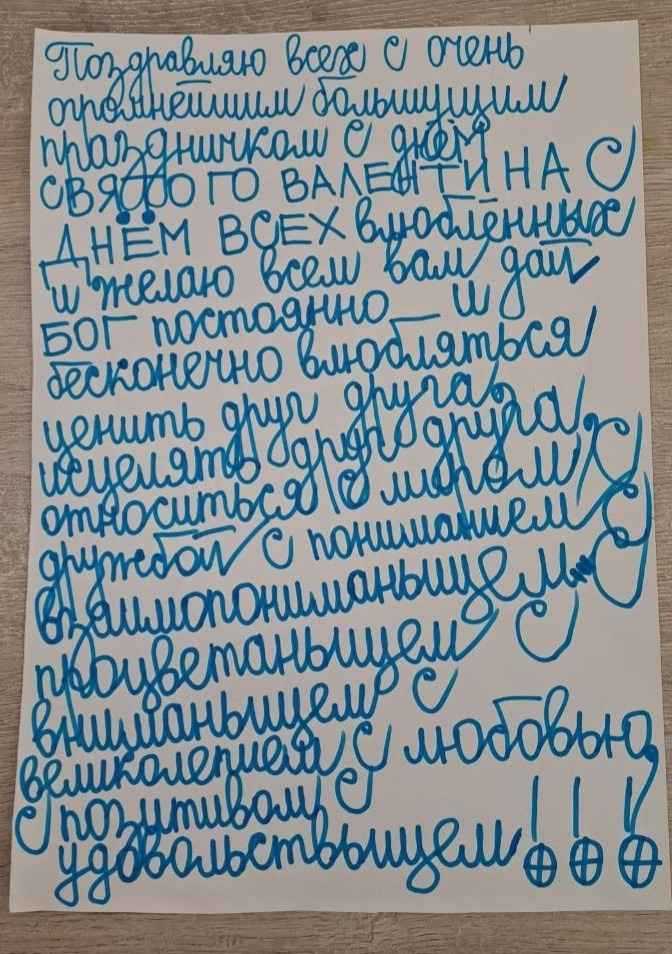 Поздравляю всех с очень
огромнейшим большущим
праздничком с днём
СВЯТОГО ВАЛЕНТИНА С
ДНЁМ ВСЕХ влюблённых
и желаю всем вам дай
БОГ постоянно и
бесконечно влюбляться
ценить друг друга,
исцелять друг друга
относиться с миром с
дружбой с пониманием с
взаимопониманьищем с
процветаньищем с
вниманьищем с
великолепием с любовью,
с позитивом с
удовольствьищем!!!